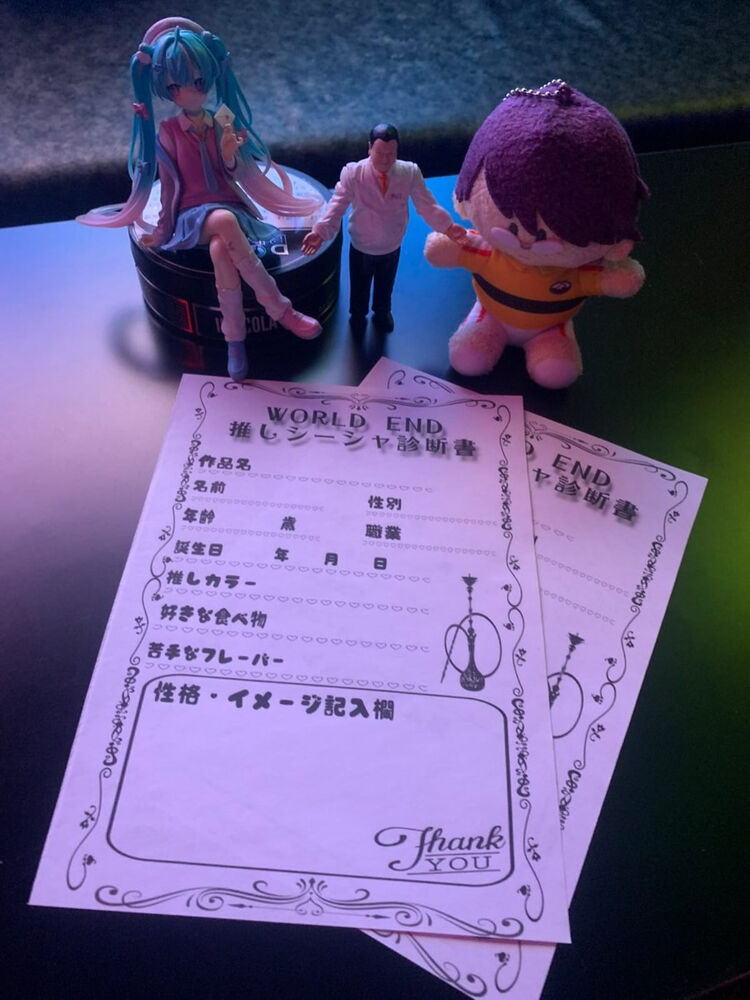 COLA
WORLD END
推しシーシャ診断書
作品名
名前 性別
年齢 歳 職業
誕生日 年 月 日
推しカラー
好きな食べ物
苦手なフレーバー
性格・イメージ記入欄
Thank
YOU
END
ャ診断書